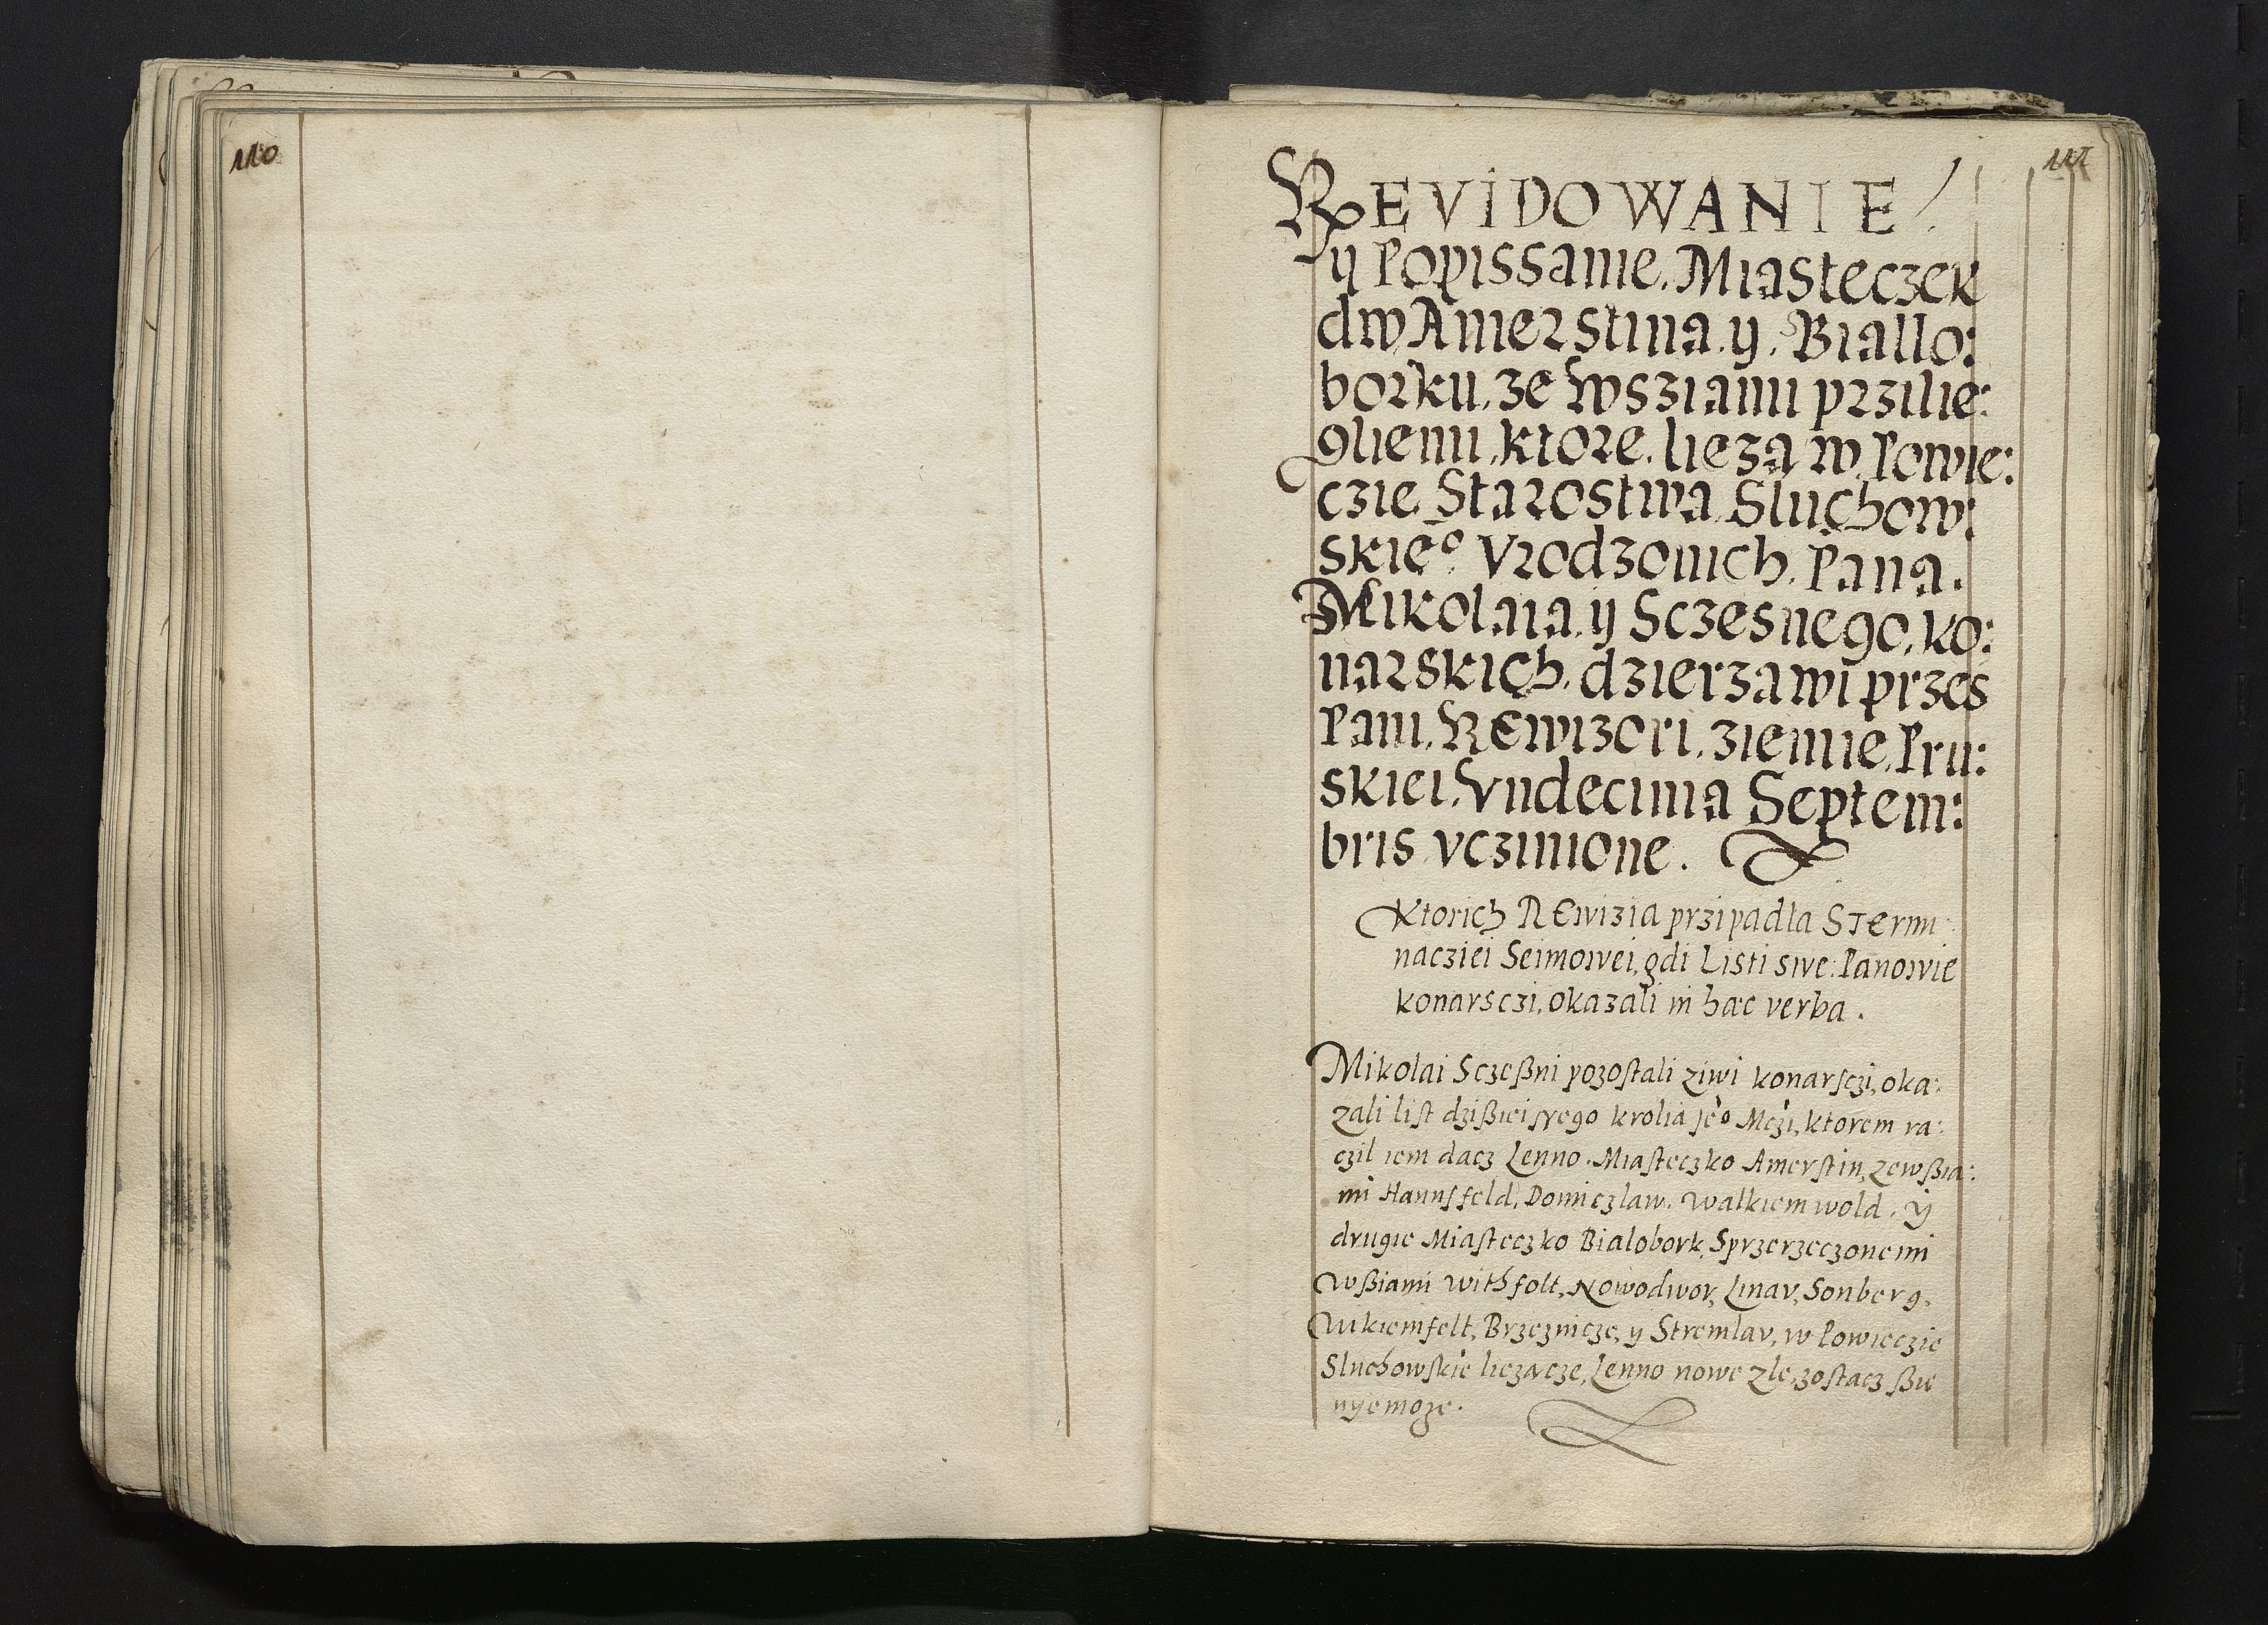 110
111
REVIDOWANIE/
ÿ Popissanie. Miasteczek
dw Amerstina. y. Biallo:
borku. ze wsziami przilie:
gliemi. ktore. lieza w. Powie:
czie Starostwa Sluchow:
skieo Vrodzonich. Pana.
Mikolaia. ÿ Sczesnego. ko:
narskich. dzierzawi przes
Pani. REwizori. ziemie. Pru:
skiei. Vndecima Septem:
bris vczinione.
Ktorich REwizia przipadla STermi
nacziei Seimowei, gdi Listi swe: Panowie
konarsczi, okazali in hæc verba.
Mikolai Sczeßni pozostali ziwi konarsczi, oka:
zali list dzißieisego krolia Je͛o Mczi, ktorem ra:
czil iem dacz Lenno. Miasteczko Amerstin, zewßia:
mi Hannsfeld, Domiczlaw. Walkiemwold. ÿ
drugie Miasteczko Bialobork, Sprzerzeczonemi
wßiami withfolt, Nowodwor, Linav, Sonberg,
Aikiemfelt, Brzeznicze, y Stremlav, w Powieczie
Sluchowskie liezacze, Lenno nowe zle, zostacz ßie
nyemoze.